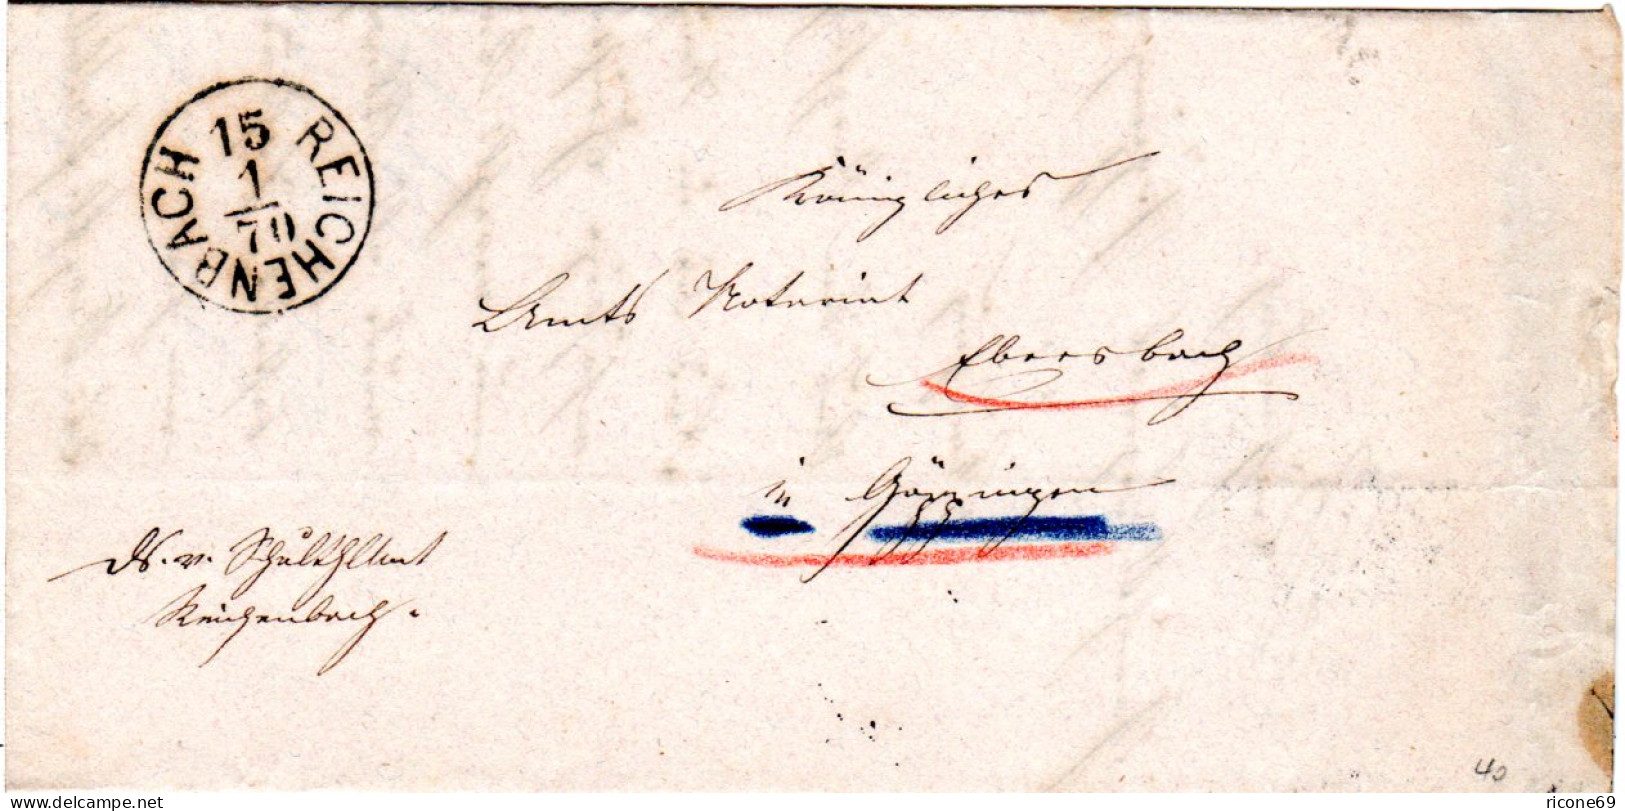 REICHENBACH
15
1
70
Königliches
Amts Notariat
Ebersbach
in Göppingen
DS. v. Schulthßamt
Reichenbach.
40
www.delcampe.net
ricone69